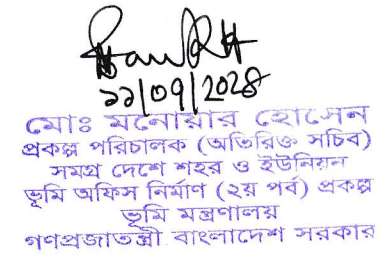 ২২/০৭/২০২৪
মোঃ মনোয়ার হোসেন
প্রকল্প পরিচালক (অতিরিক্ত সচিব)
সমগ্র দেশে শহর ও ইউনিয়ন
ভূমি অফিস নির্মাণ (২য় পর্ব) প্রকল্প
ভূমি মন্ত্রণালয়
গণপ্রজাতন্ত্রী বাংলাদেশ সরকার